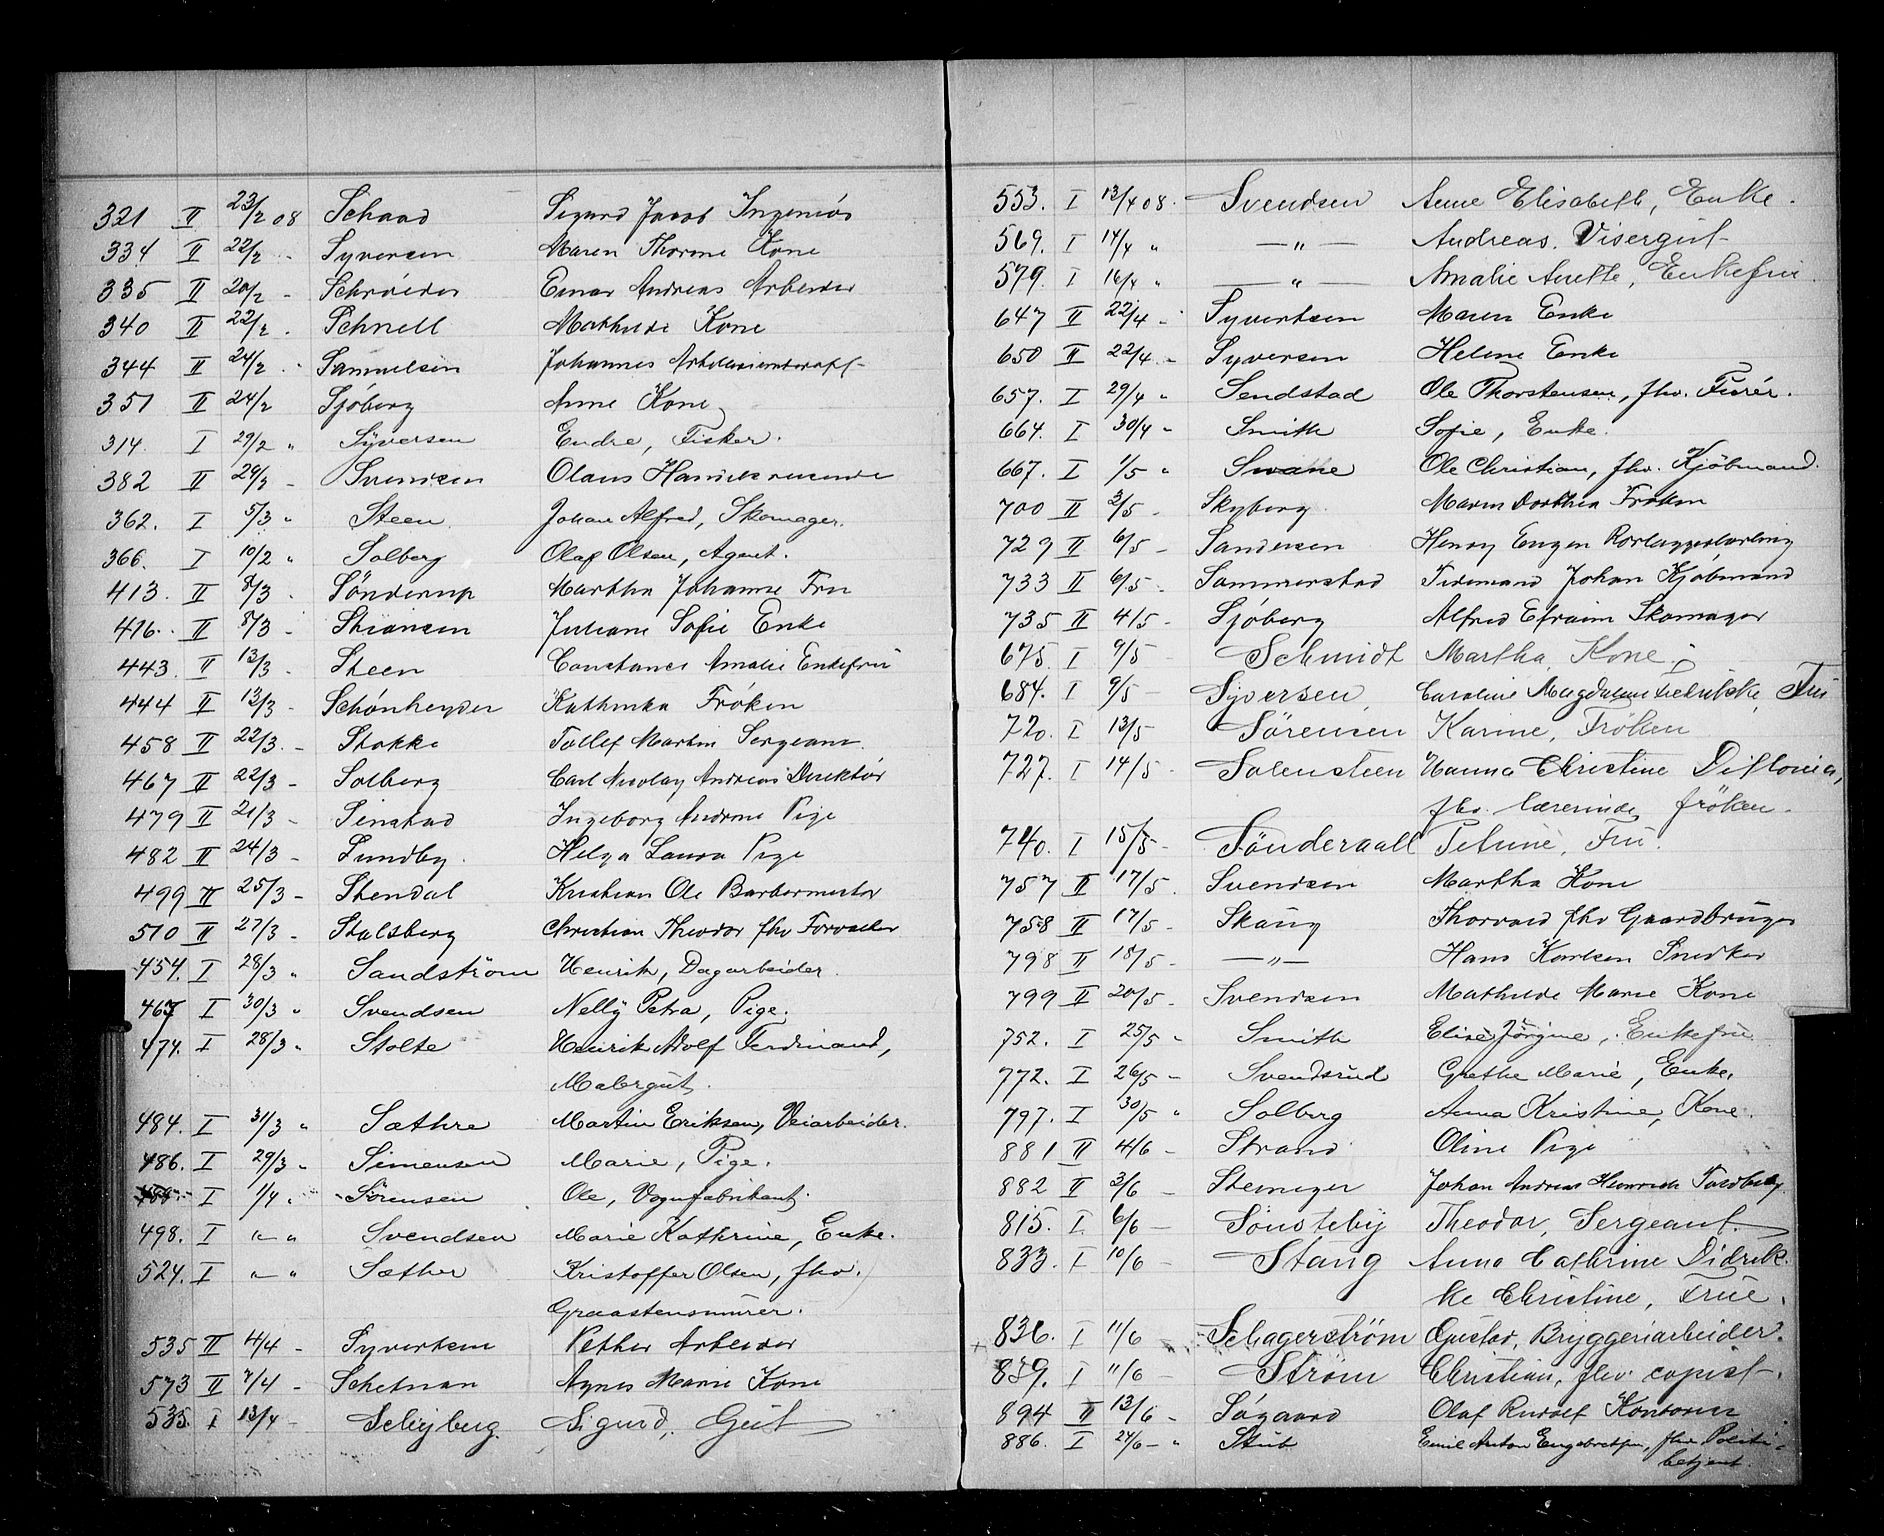 321 II 23/2 08 Schaad Sigurd Jacob Ingeniör
334 II 22/2 - Syversen Maren Thorine Kone
335 II 20/2 - Schröider Einar Andreas Arbeider
340 II 22/2 - Schnell Mathilde Kone
344 II 24/2 - Samuelsen Johannes
351 II 24/2 Sjöberg Anne Kone
314. I 29/2 " Syversen Endre, Fisker.
382 II 29/2 - Svendsen Olaus Handelsreisende
362. I 5/3 " Steen Johan Alfred, Skomager.
366. I 10/2 " Solberg Olaf Olsen, Agent.
413. II 8/3 - Sönderup Martha Johanne Fru
416. II 8/3 - Stiansen Juliane Sofie Enke
443. II 13/3 - Steen Constance Amalie Enkefru
444 II 13/3 - Schönheyder Kathinka Fröken
458 II 22/3 - Stokke Tollef Martin Sergeant
467 II 22/3 - Solberg Carl Nicolay Andreas Direktör
479 II 21/3 - Sinstad Ingeborg Andrine Pige
482 II 24/3 - Sundby. Helga Laura Pige
499 II 25/3 - Stendal Kristian Ole Barbermester
510 II 27/3 - Stalsberg Christian Theodor fhv Forvalter
454. I 28/3 " Sandström Henrik, Dagarbeider.
467 I 30/3 " Svendsen Nelly Petra, Pige.
474. I 28/3 " Stolte Henrik Adolf Ferdinand,
Malergut.
484. I 31/3 " Sæthre Martin Eriksen, Veiarbeider.
486. I 29/3 " Simensen Marie, Pige.
488. I 1/4 " Sörensen Ole, Vognfabrikant.
498. I "-" Svendsen Marie Kathrine, Enke.
524. I "-" Sæther Kristoffer Olsen, fhv.
Graastensmurer.
535 II 4/4 - Syvertsen Petter Arbeider
573 II 7/4 - Schetnan Agnes Marie Kone
535. I 13/4 - Schjberg. Sigurd, Gut
553. I 13/4 08. Svendsen Anne Elisabeth, Enke.
569. I 14/4 " —"— Andreas. Visergut
579. I 16/4 " —"— Amalie Anette, Enkefru
647 II 22/4 - Syvertsen Maren Enke
650 II 22/4 - Syversen Helene Enke
657. I 29/4 " Sendstad Ole Thorstensen, fhv. Furér.
664. I 30/4 " Smith Sofie, Enke.
667. I 1/5 " Swane Ole Christian, fhv. Kjöbmand.
700 II 3/5 - Skyberg Maren Dorthea Fröken
729 II 6/5 - Sandersen Henry Eugen Rörlæggerlærling
733 II 6/5 - Sammerstad Tidemand Johan Kjöbmand
735 II 4/5 - Sjöberg Alfred Efraim Skomager
675. I 9/5 - Schmidt Martha, Kone
684. I 9/5 - Syversen, Caroline Magdalene Fredrikke, Fru
720. I 13/5 Sörensen Karine, Fröken
727. I 14/5 - Solensteen Hanna Christine Ditlovia,
fhv. lærerinde, fröken.
740. I 15/5 - Sönderaall Petrine, Fru.
757 II 17/5. Svendsen Martha Kone
758 II 17/5. Skaug Thorvald fhv Gaardbruger
798 II 18/5 - —"— Hans Karlsen Snedker
799 II 20/5. Svendsen Mathilde Marie Kone
752. I 25/5 " Smith Elise Jörgine, Enkefru
772. I 26/5 - Svendsrud Grethe Marie, Enke.
797. I 30/5 " Solberg Anna Kristine, Kone.
881 II 4/6 - Strand Oline Pige
882 II 3/6 - Steineger Johan Andreas Heinrich
815. I. 6/6 - Sönsteby Theodor, Sergeant.
833. I 10/6 - Stang Anna Cathrine Didrik
ke Christine, Frue.
836. I 11/6 - Schagerström Gustav, Bryggeriarbeider.
839. I 11/6 - Ström Christian, fhv. copist.
894 II 13/6 - Sögaard Olaf Rudolf Kontorist
886. I 24/6 - " Stub Emil Anton Engebretsen, fhv Politi-
betjent.